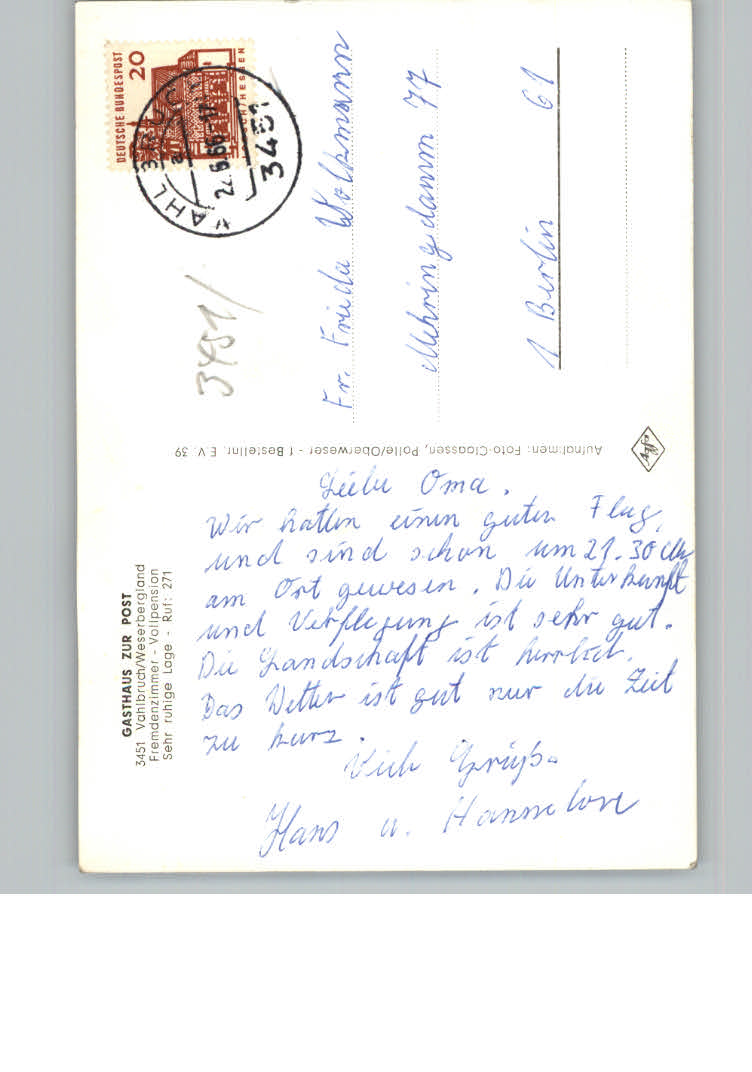 GASTHAUS ZUR POST
3451 Vahlbruch/Weserbergland
Fremdenzimmer - Vollpension
Sehr ruhige Lage - Ruf: 271
Liebe Oma.
Wir hatten einen guten Flug,
und sind schon um 21.30 Uhr
am Ort gewesen. Die Unterkunft
und Verpflegung ist sehr gut.
Die Landschaft ist herrlich.
Das Wetter ist gut nur die Zeit
zu kurz.
Viele Grüße
Hans u. Hannelore
Aufnahmen: Foto-Claassen, Polle/Oberweser - 1 Bestellnr. E.V. 39
Agfa
DEUTSCHE BUNDESPOST
20
HESSEN
VAHLBRUCH
3451
3451/
Fr. Frieda Wolkmann
Mehringdamm 77
1 Berlin 61